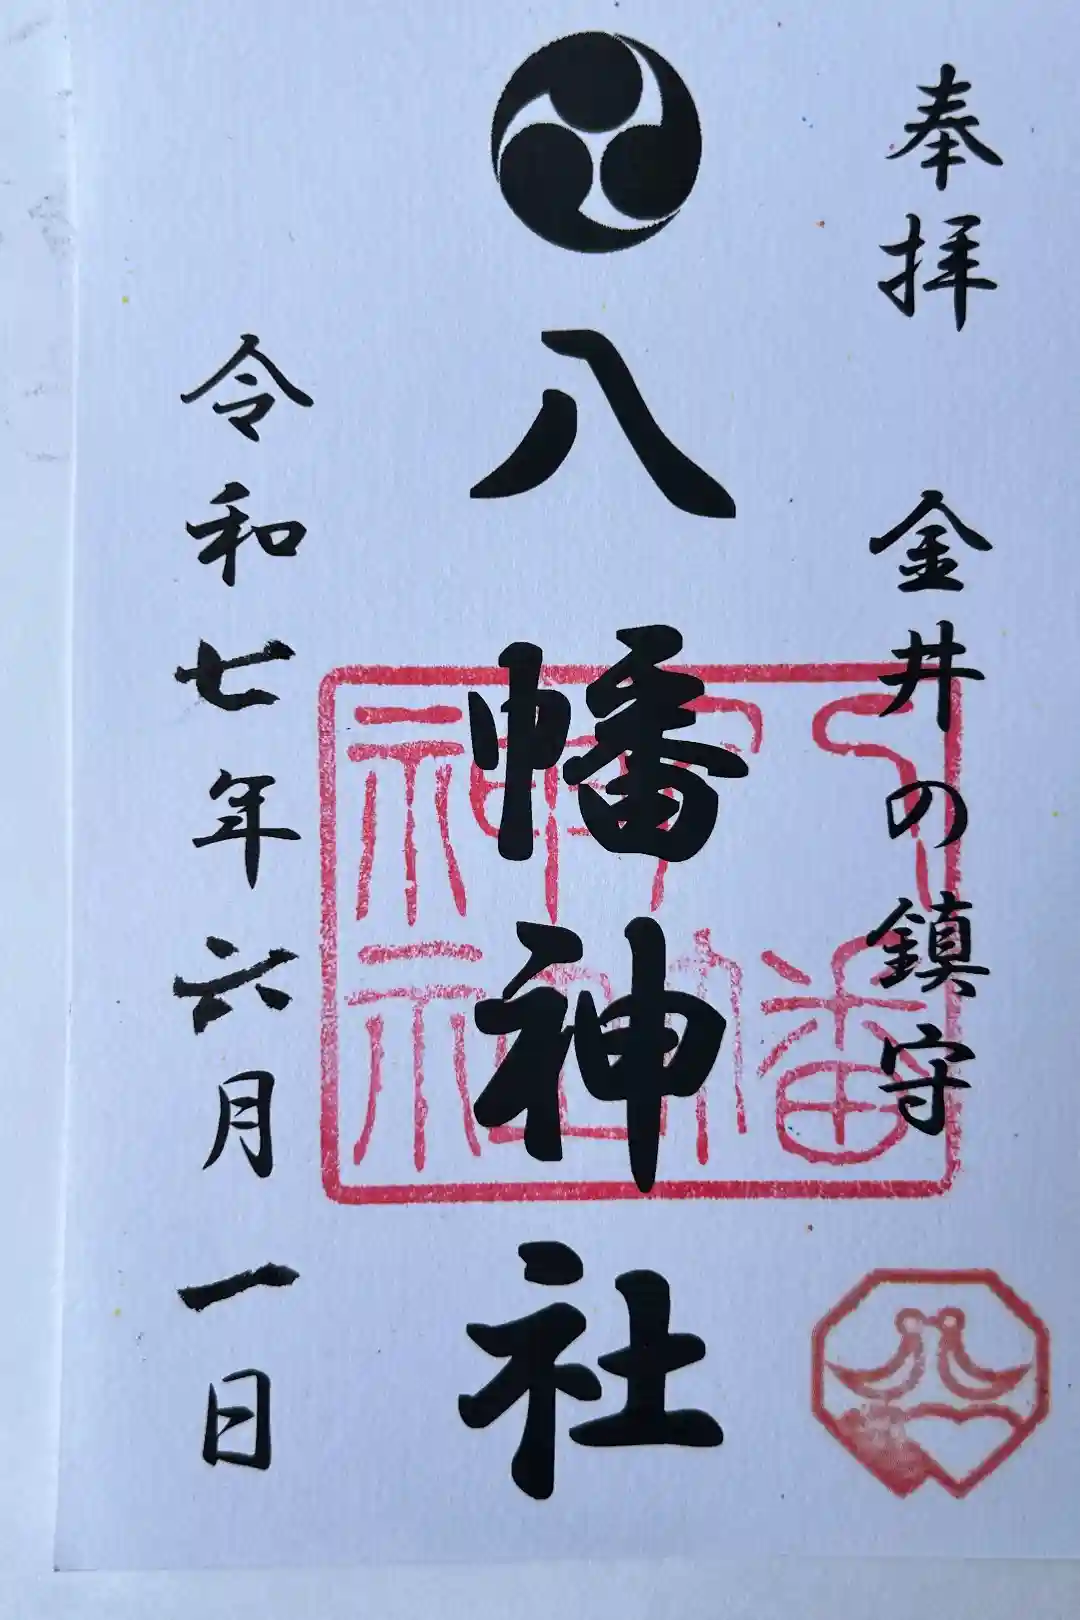 奉拝 金井の鎮守
八幡神社
八幡
神社
令和七年六月一日